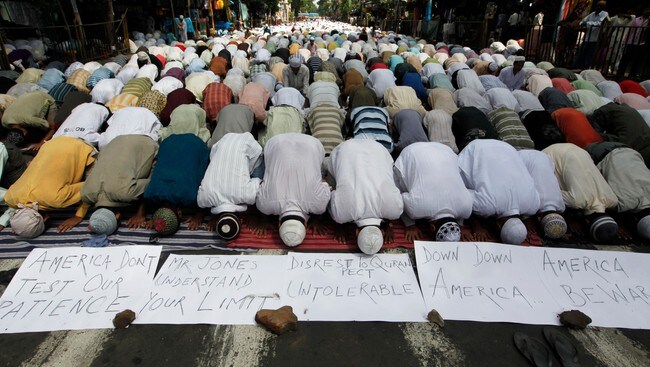 AMERICA DONT
TEST OUR
PATIENCE
MR JONES
UNDERSTAND
YOUR LIMIT
DISREST TO QURAN
PECT
UNTOLERABLE
DOWN DOWN
AMERICA...
AMERICA
BEWAR